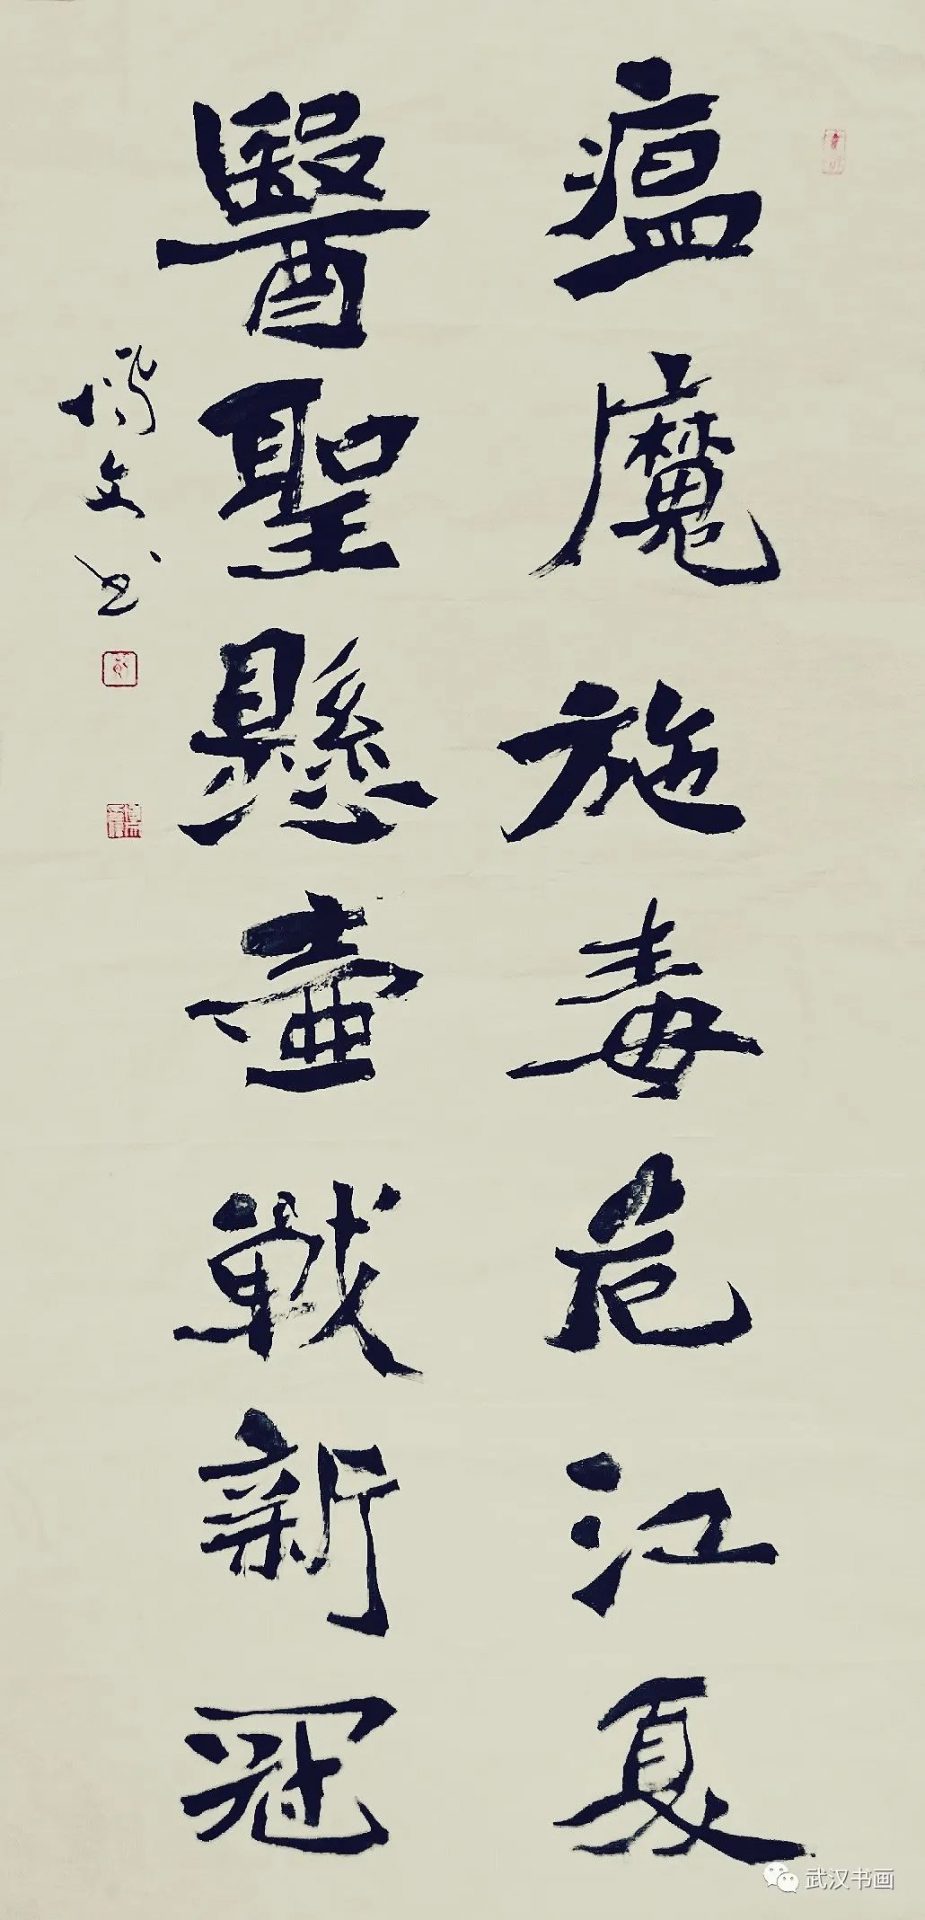 瘟魔施毒危江夏
醫聖懸壺戰新冠
文书
武汉书画